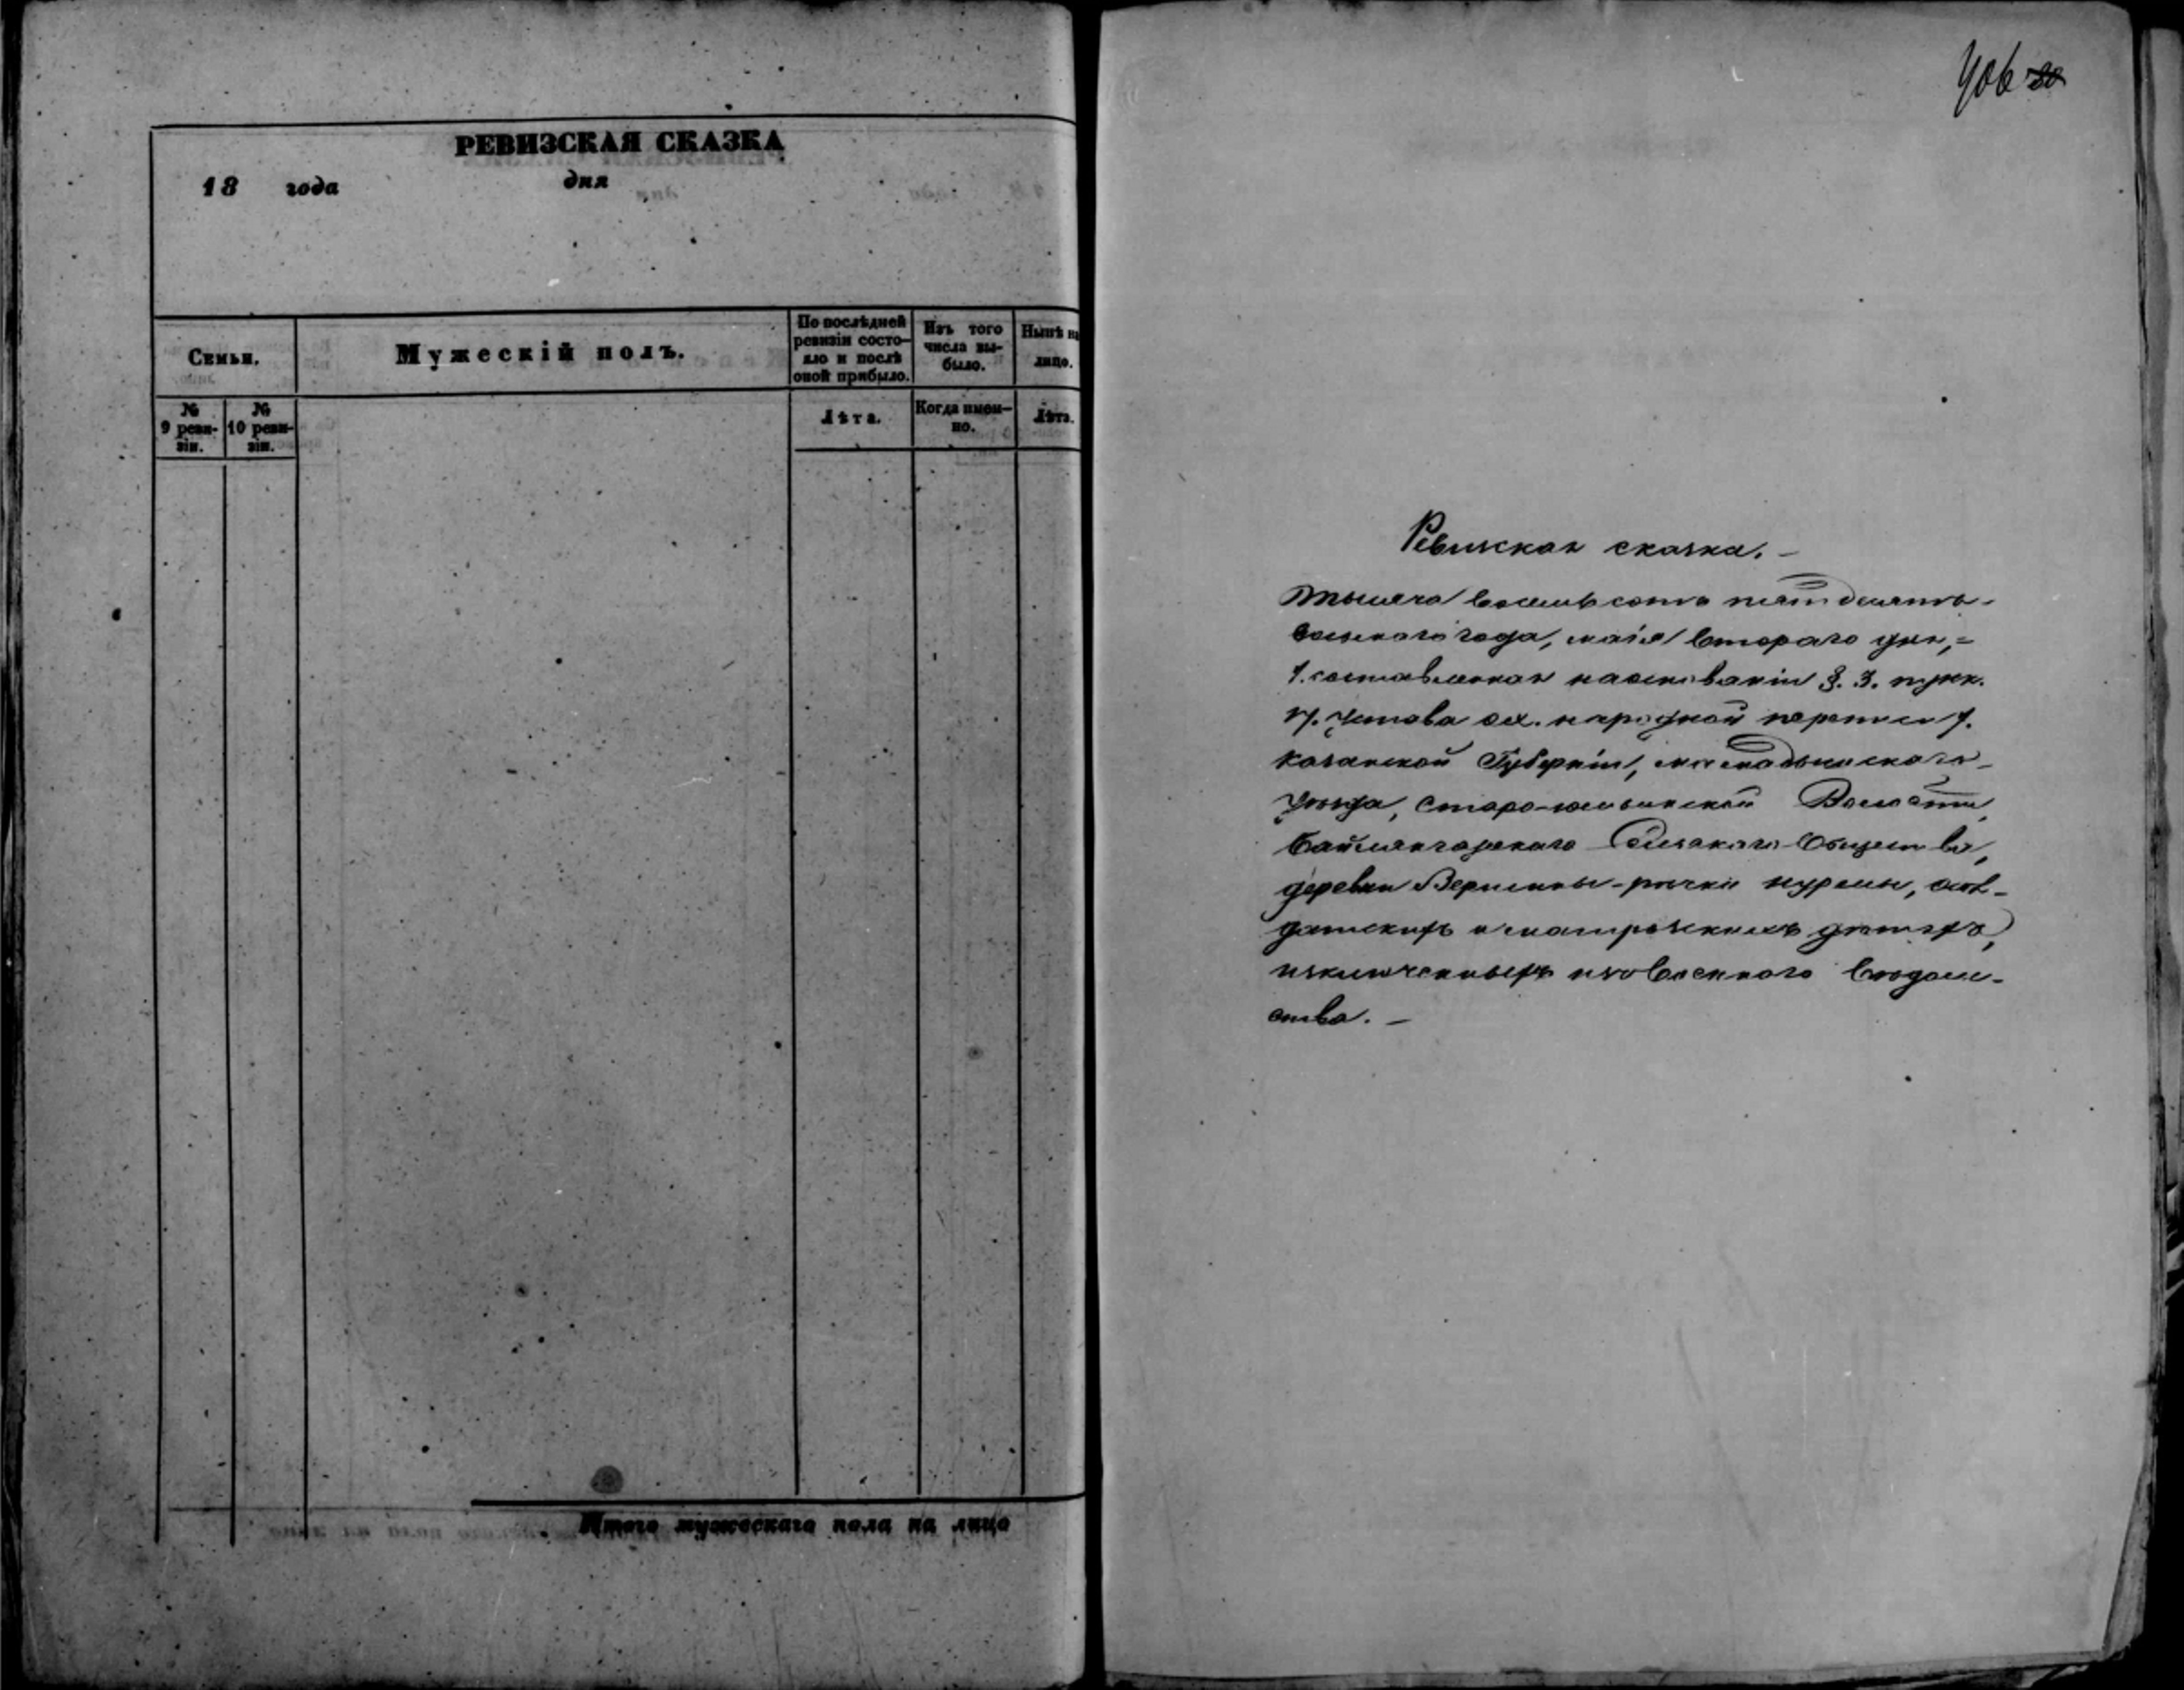 РЕВИЗСКАЯ СКАЗКА
18 года дня
Семьи.
Мужескій полъ.
По послѣдней ревизіи состояло и послѣ оной прибыло.
Изъ того числа выбыло.
Нынѣ на лицо.
№ 9 ревизіи.
№ 10 ревизіи.
Лѣта.
Когда именно.
Лѣта.
Итого мужескаго пола на лицо
406
Ревизская сказка. –
Тысяча восемь сотъ пятьдесятъ
восьмаго года, маія втораго дня,
составленная на основаніи §. 3. пунк.
Устава о народной переписи
Казанской Губерніи, Мамадышскаго
уѣзда, Старо-юмьинской Волости,
Сельскаго Общества,
деревни Вершины-рѣчки Нурмы, сол-
датскихъ и матроскихъ дѣтей,
исключенныхъ изъ военнаго вѣдом-
ства. –